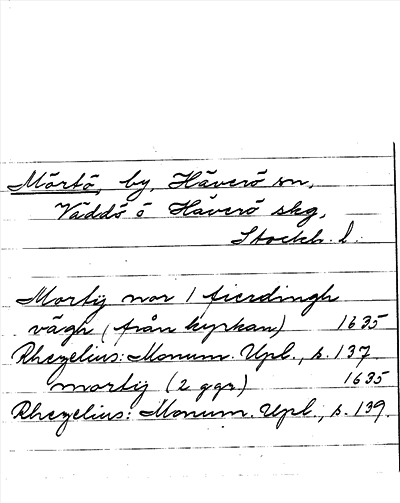 Mörtö, by, Häverö sn,
Väddö ö Häverö skg,
Stockh. l.
Mortiz nor 1 fierdingh
vägh (från kyrkan) 1635
Rhezelius: Monum. Upl., s. 137.
mortiz (2 ggr) 1635
Rhezelius: Monum. Upl., s. 139.